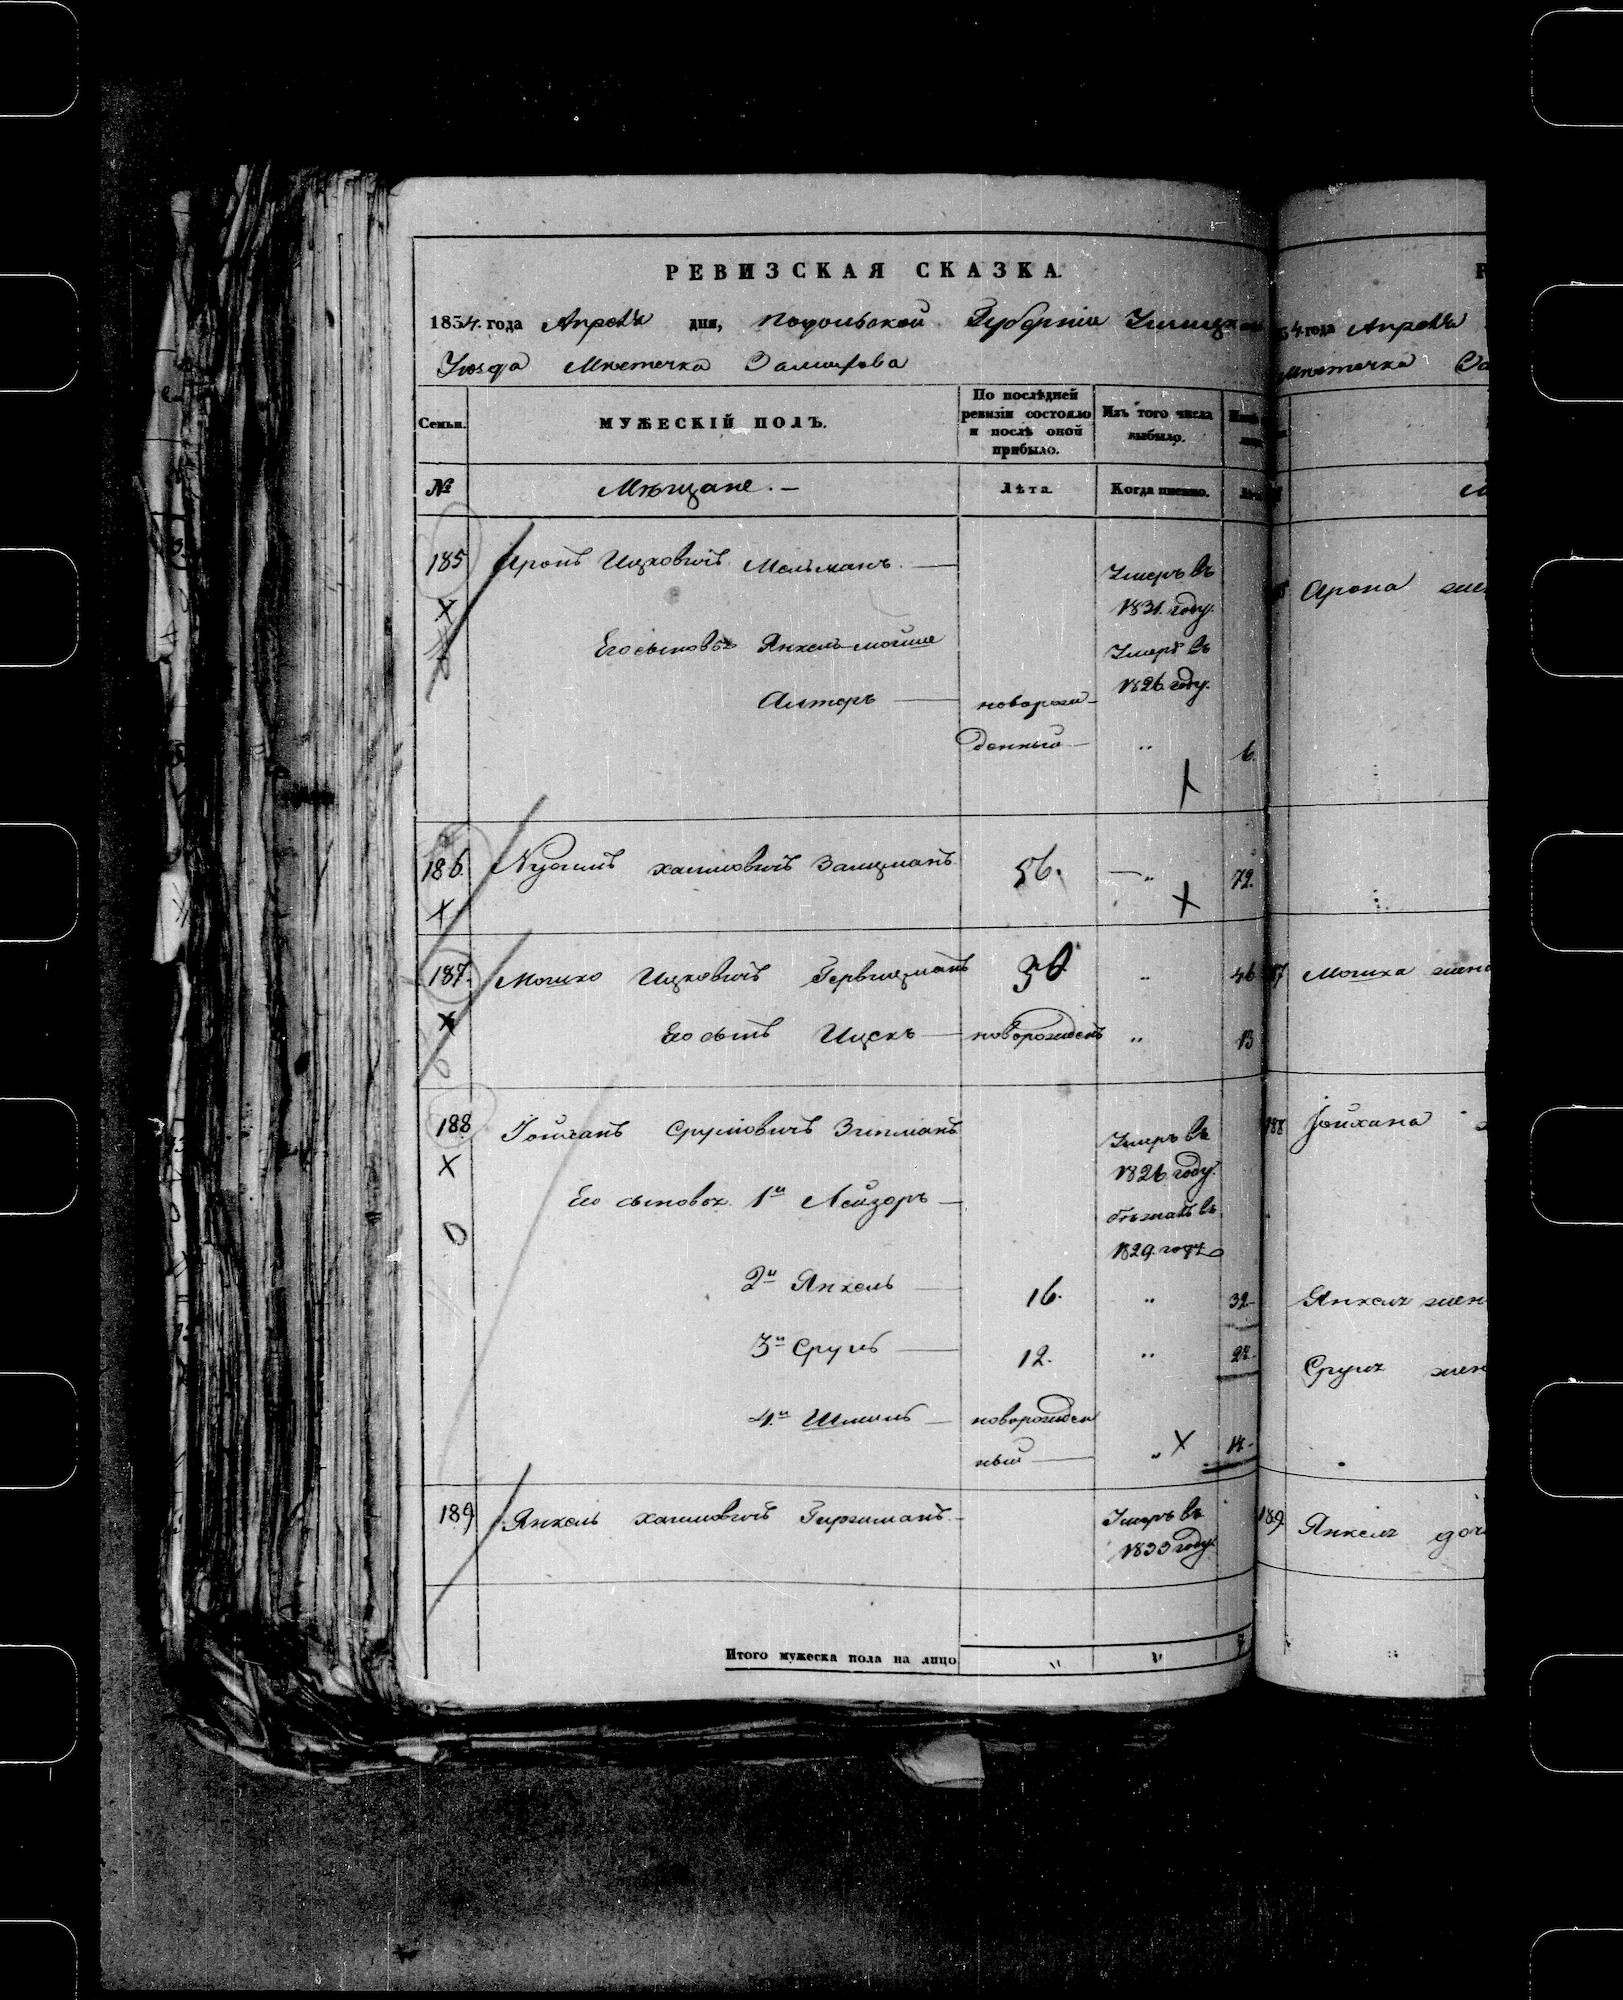 РЕВИЗСКАЯ СКАЗКА
1834. года Апреля дня, Подольской Губерніи
Уезда Местечка
Семьи. МУЖЕСКІЙ ПОЛЪ. По послѣдней ревизіи состояло и послѣ оной прибыло. Изъ того числа выбыло.
№ Мѣщане. — Лѣта. Когда именно.
185 Аронъ Ицковичъ Мельманъ. — Умеръ въ
1831. году.
Его сыновья Янкель-мойше Умеръ въ
1826 году.
Алтеръ — новорож-
денный — „ 6.
186. Хаимовичъ Залцманъ 56. — „ 72.
187. Мошко Ицковичъ 30 „ 46
Его сынъ Ицекъ — новорожденъ „ 13
188 Сруліовичъ Умеръ въ
1826 году.
Его сыновья 1й Лейзоръ — бежалъ въ
1829. году
2й Янкель — 16. „ 32.
3й Сруль — 12. „
4й Шмиль — новорожден
ный — „
189 Янкель Хаимовичъ — Умеръ въ
1833 году.
Итого мужеска пола на лицо „ „
4 года Апреля
Местечка
Арона
87 Мошка жена
188
Янкеля жен
Сруля жен
189. Янкеля доч